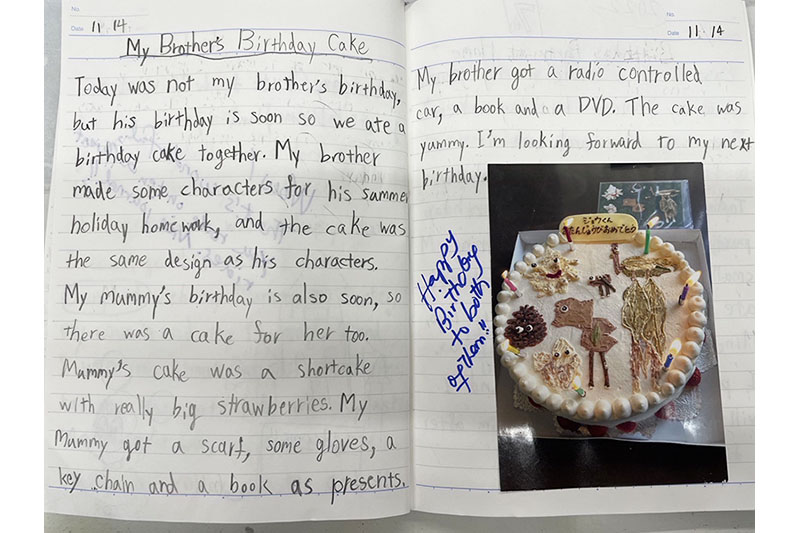 No.
Date 11 14
My Brother's Birthday Cake
Today was not my brother's birthday,
but his birthday is soon so we ate a
birthday cake together. My brother
made some characters for his summer
holiday homework, and the cake was
the same design as his characters.
My mummy's birthday is also soon, so
there was a cake for her too.
Mummy's cake was a shortcake
with really big strawberries. My
Mummy got a scarf, some gloves, a
key chain and a book as presents.
No.
Date 11 14
My brother got a radio controlled
car, a book and a DVD. The cake was
yummy. I'm looking forward to my next
birthday.
Happy
Birthday
to both
of them!!
ジョウくん
おたんじょうびおめでとう